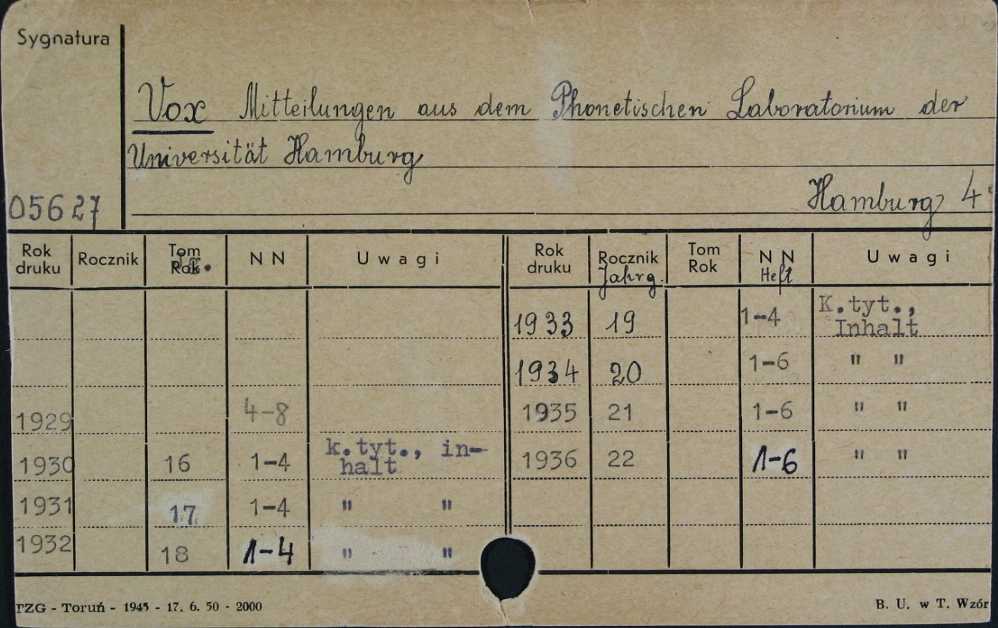 Sygnatura
Vox Mitteilungen aus dem Phonetischen Laboratorium der
Universität Hamburg
05627
Hamburg 4
Rok druku Rocznik Tom Rok N N Uwagi Rok druku Rocznik Jahrg. Tom Rok N N Heft Uwagi
1933 19 1-4 K.tyt., Inhalt
1934 20 1-6 " "
1929 4-8 1935 21 1-6 " "
1930 16 1-4 k.tyt., in-halt 1936 22 1-6 " "
1931 17 1-4 " "
1932 18 1-4 " "
TZG - Toruń - 1945 - 17. 6. 50 - 2000
B. U. w T. Wzór